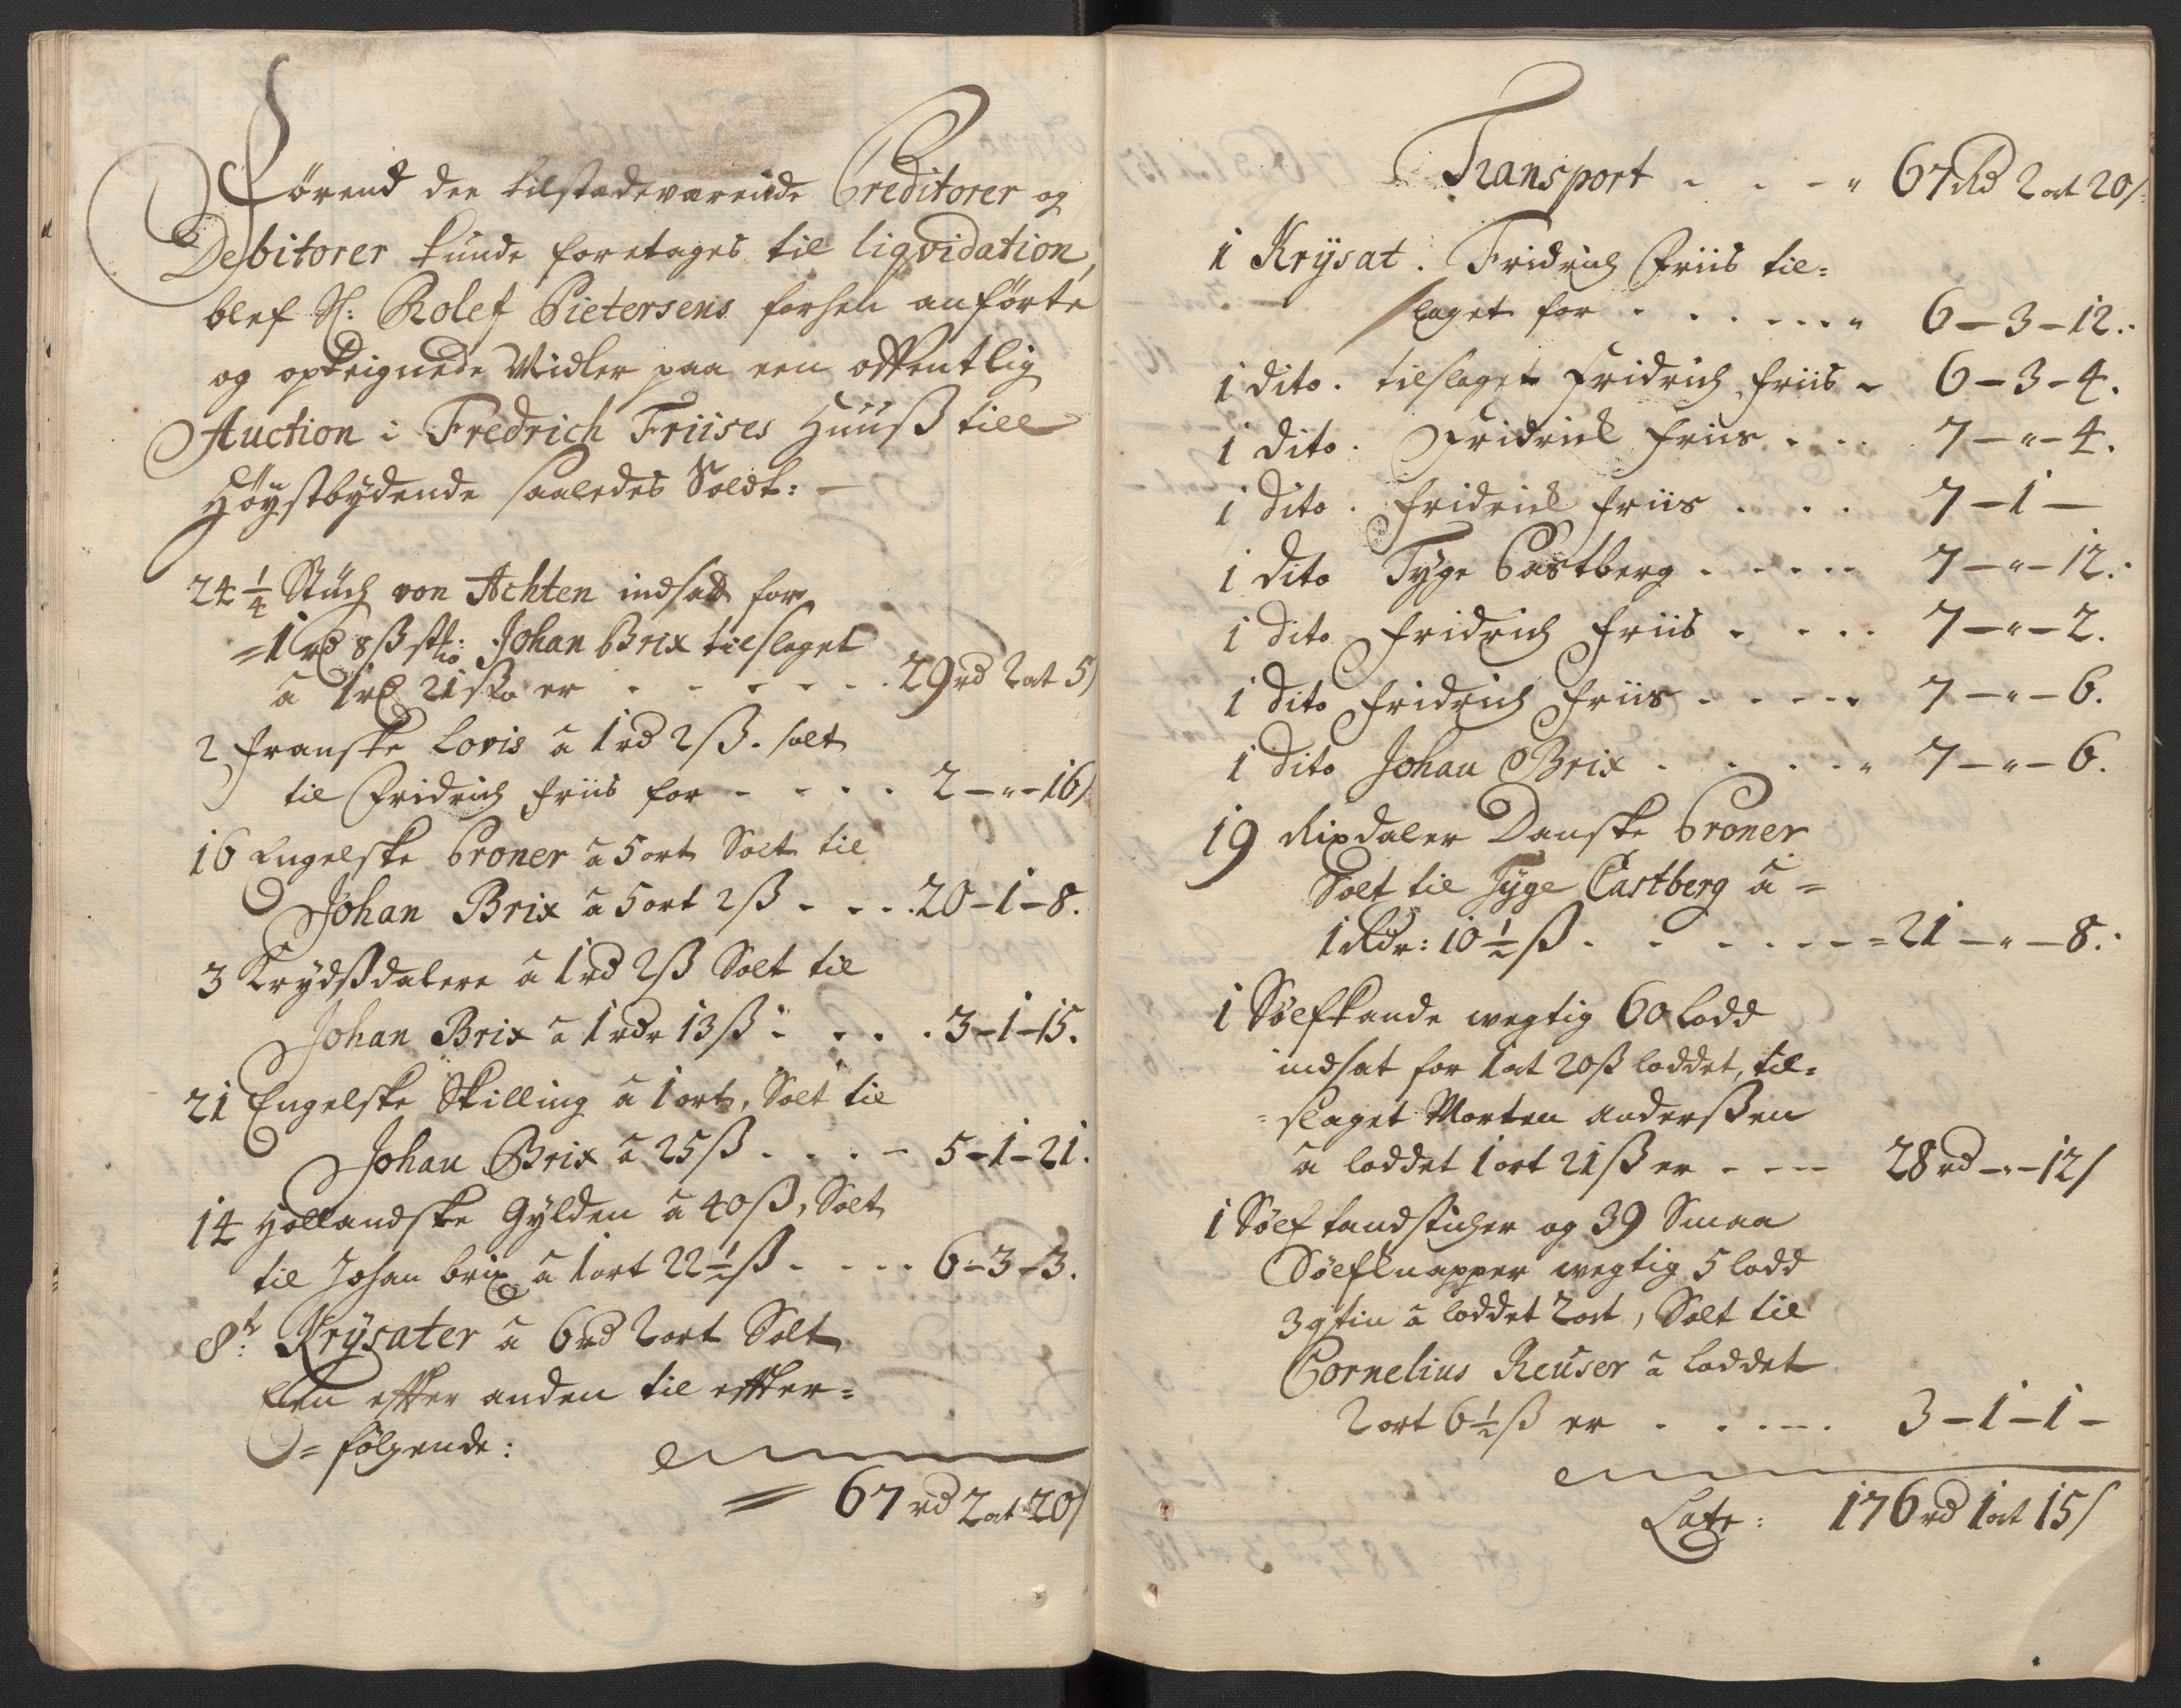 Førend dee tilstædeværende Creditorer og
Debitorer kunde foretages til liqvidation,
blef Sl: Rolef Pietersens forhen anførte
og opteignede Midler paa een offentlig
Auction i Fredrich Friises Huuß till
Høystbydende saaledes Soldt: —
24 1/4 Stück von Achten indsadt for
1 rd 8 ß st: Johan Brix tilslaget
a 1 rd 21 ß er . . . . . . 29 rd 2 ort 5/
2 franske Lovis a 1 rd 2 ß. solt
til Fridrich Friis for - . . . 2 — " — 16/
16 Engelske Croner a 5 ort Solt til
Johan Brix a 5 ort 2 ß - . . . 20 - 1 - 8.
3 Krydßdalere a 1 rd 2 ß Solt til
Johan Brix a 1 rdr 13 ß . . . . 3 - 1 - 15.
21 Engelske Skilling a 1 ort, Solt til
Johan Brix a 25 ß . . . - 5 - 1 - 21.
14 Hollandske Gylden a 40 ß, Solt
til Johan brix a 1 ort 22 1/2 ß - . . . 6 - 3 - 3.
8t: Krÿsater a 6 rd 2 ort Solt
Een effter anden til effter=
=følgende:
= 67 rd 2 ort 20/
Transport - . . - " 67 Rd 2 ort 20/
1 Krÿsat. Fridrich Friis til=
slaget for . . . . . . " 6 — 3 — 12.
1 dito. tilslaget Fridrich Friis - 6 — 3 — 4.
1 dito. Fridrich Friis . . . 7 — " — 4.
1 dito. Fridrich Friis . . . 7 — 1 —
1 dito Tÿge Castberg . . . . . 7 — " — 12.
1 dito Fridrich Friis . . . . 7 — " — 2.
1 dito Fridrich Friis . . . . . 7 — " — 6.
1 dito Johan Brix . . . . " 7 — " — 6.
19 Rixdaler Danske Croner
Solt til Tÿge Castberg a =
1 Rdr: 10 1/2 ß . . . . . . = 21 — " — 8.
1 Sølfkande wegtig 60 Lodd
indsat for 1 ort 20 ß loddet, til=
=slaget Morten Anderßen
a loddet 1 ort 21 ß er - - - 28 rd — " — 12/
1 Sølf tandsticher og 39 Smaa
Sølfknapper wegtig 5 lodd
3 qtin a loddet 2 ort, Solt til
Cornelius Reuser a loddet
2 ort 6 1/2 ß er . . . . . 3 — 1 — 1 —
Late: 176 rd 1 ort 15/